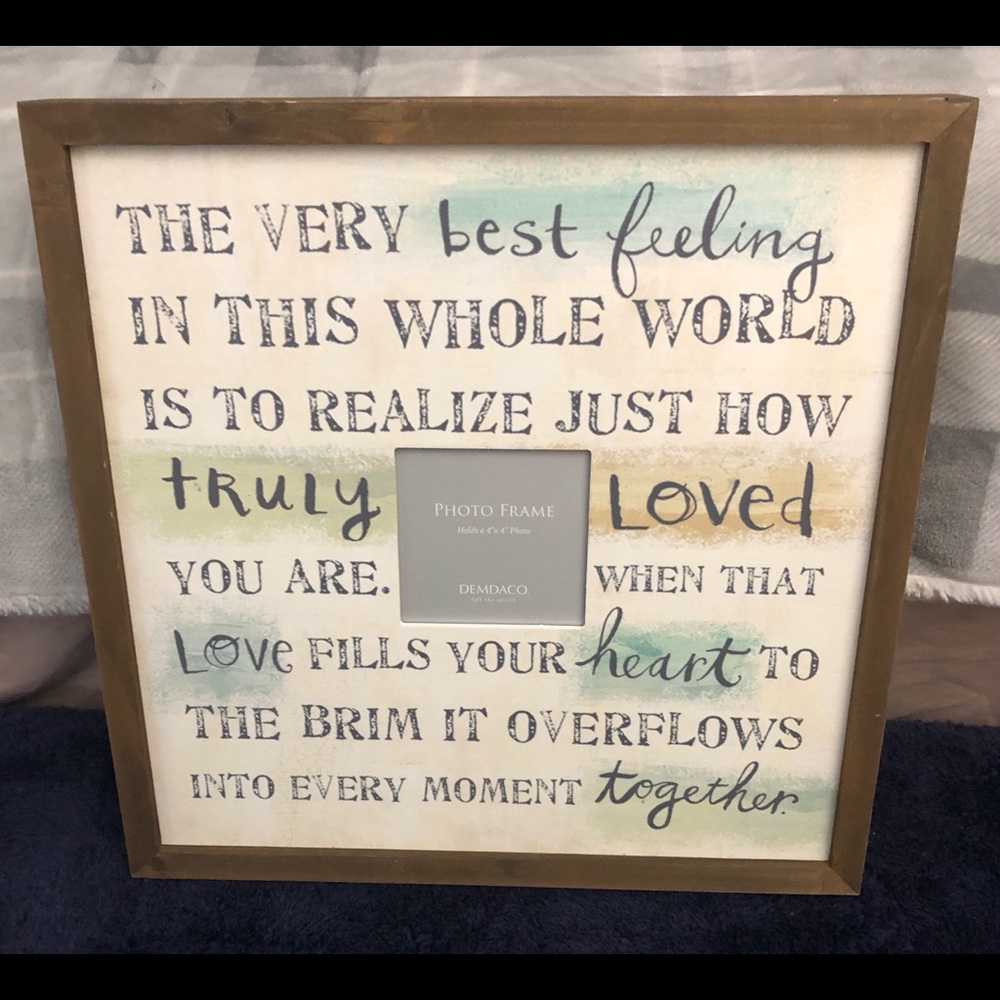 THE VERY best feeling
IN THIS WHOLE WORLD
IS TO REALIZE JUST HOW
tRULy LOVed
PHOTO FRAME
Holds a 4"x 4" Photo
DEMDACO
YOU ARE. WHEN THAT
LOVe FILLS YOUR heart TO
THE BRIM IT OVERFLOWS
INTO EVERY MOMENT together.